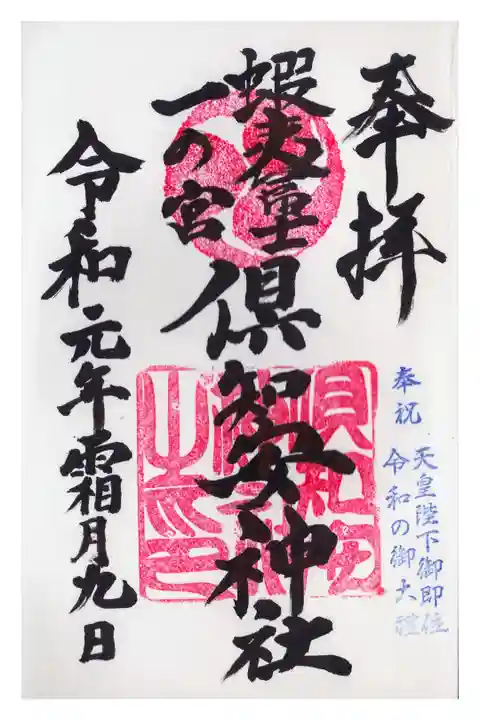 奉拝
奉祝 天皇陛下御即位
令和の御大禮
蝦夷富士
一の宮
倶智安神社
令和元年霜月九日